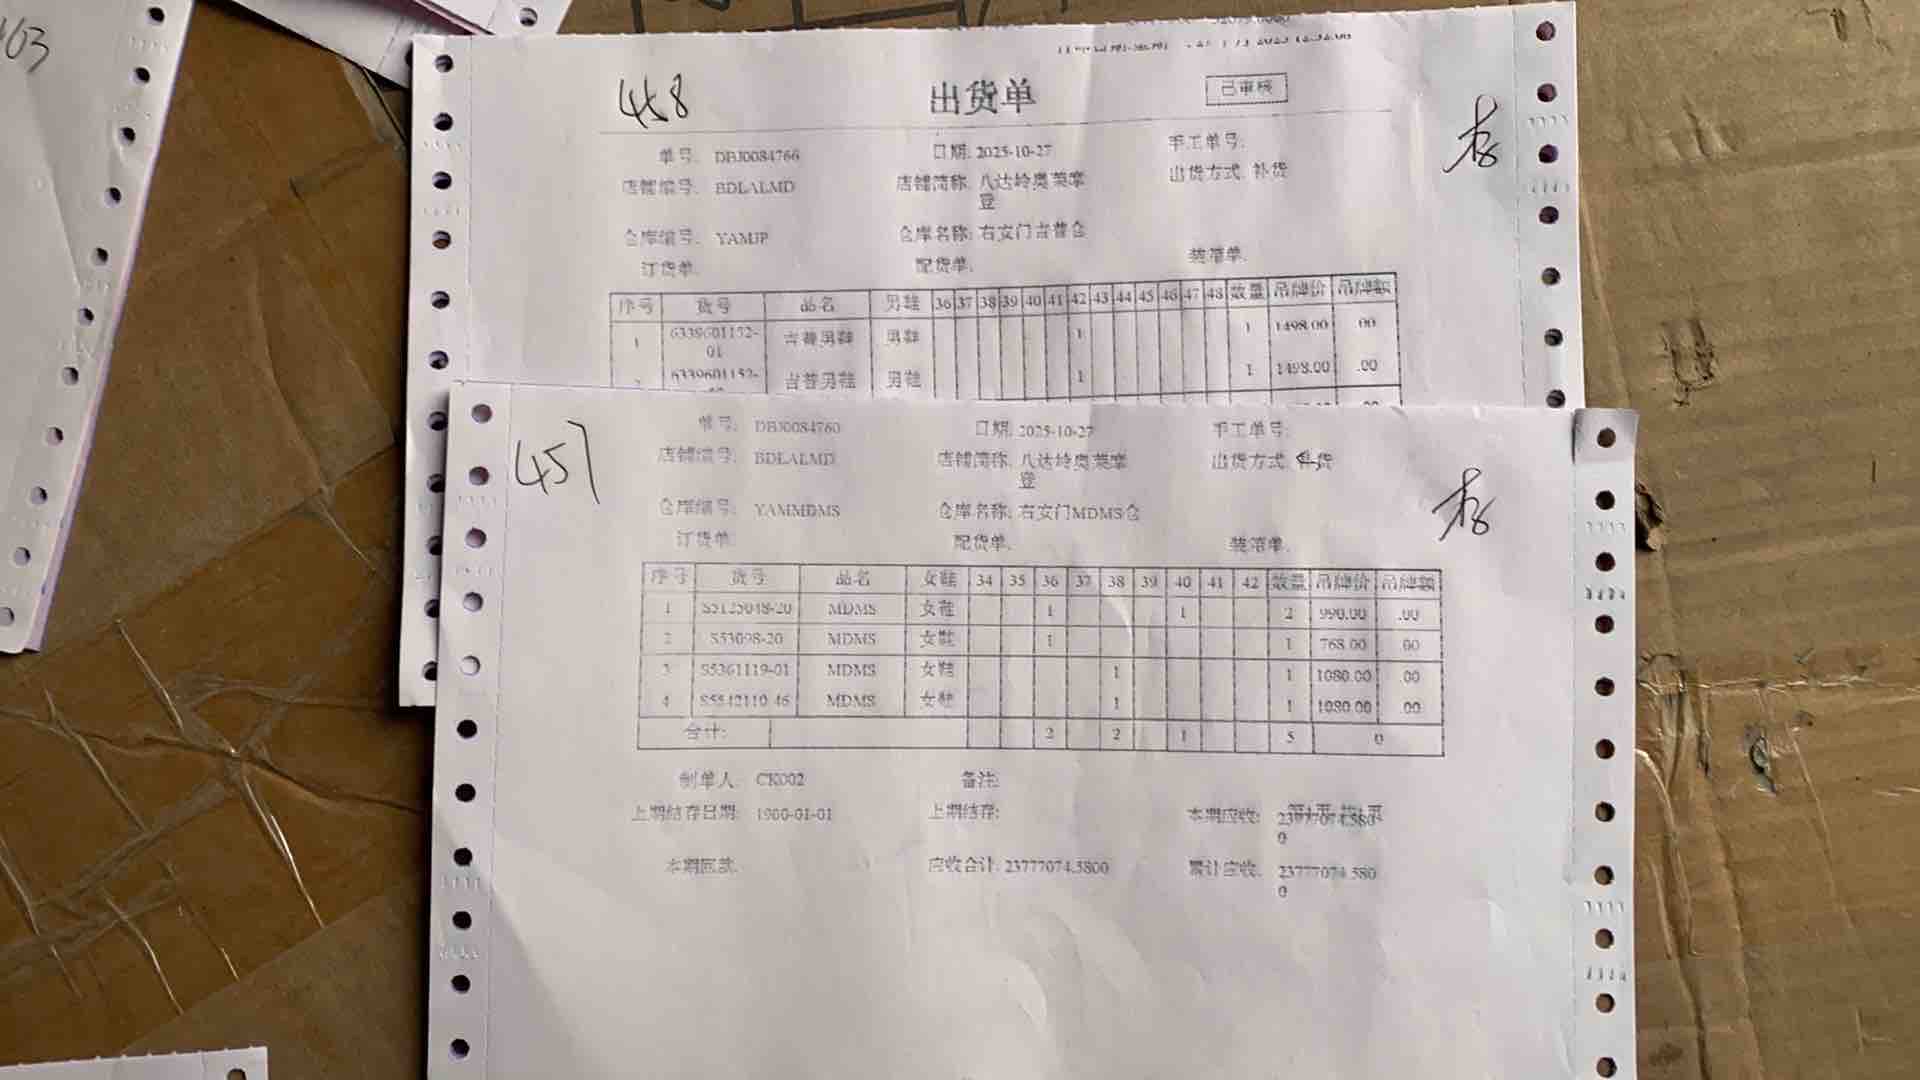 403
458
出货单
已审核
存
单号: DBJ0084766 日期: 2025-10-27 手工单号:
店铺编号: BDLALMD 店铺简称: 八达岭奥莱摩登 出货方式: 补货
仓库编号: YAMJP 仓库名称: 右安门吉普仓
订货单: 配货单: 装箱单:
序号 货号 品名 男鞋 36 37 38 39 40 41 42 43 44 45 46 47 48 数量 吊牌价 吊牌额
1 6339601152-01 吉普男鞋 男鞋 1 1 1498.00 .00
6339601152- 吉普男鞋 男鞋 1 1 1498.00 .00
457
存
单号: DBJ0084760 日期: 2025-10-27 手工单号:
店铺编号: BDLALMD 店铺简称: 八达岭奥莱摩登 出货方式: 补货
仓库编号: YAMMDMS 仓库名称: 右安门MDMS仓
订货单: 配货单: 装箱单:
序号 货号 品名 女鞋 34 35 36 37 38 39 40 41 42 数量 吊牌价 吊牌额
1 S5125048-20 MDMS 女鞋 1 1 2 990.00 .00
2 S53098-20 MDMS 女鞋 1 1 768.00 .00
3 S5361119-01 MDMS 女鞋 1 1 1080.00 .00
4 S5542110-46 MDMS 女鞋 1 1 1080.00 .00
合计: 2 2 1 5 0
制单人: CK002 备注:
上期结存日期: 1900-01-01 上期结存: 本期应收: 23777074.5800
本期回款: 应收合计: 23777074.5800 累计应收: 23777074.5800